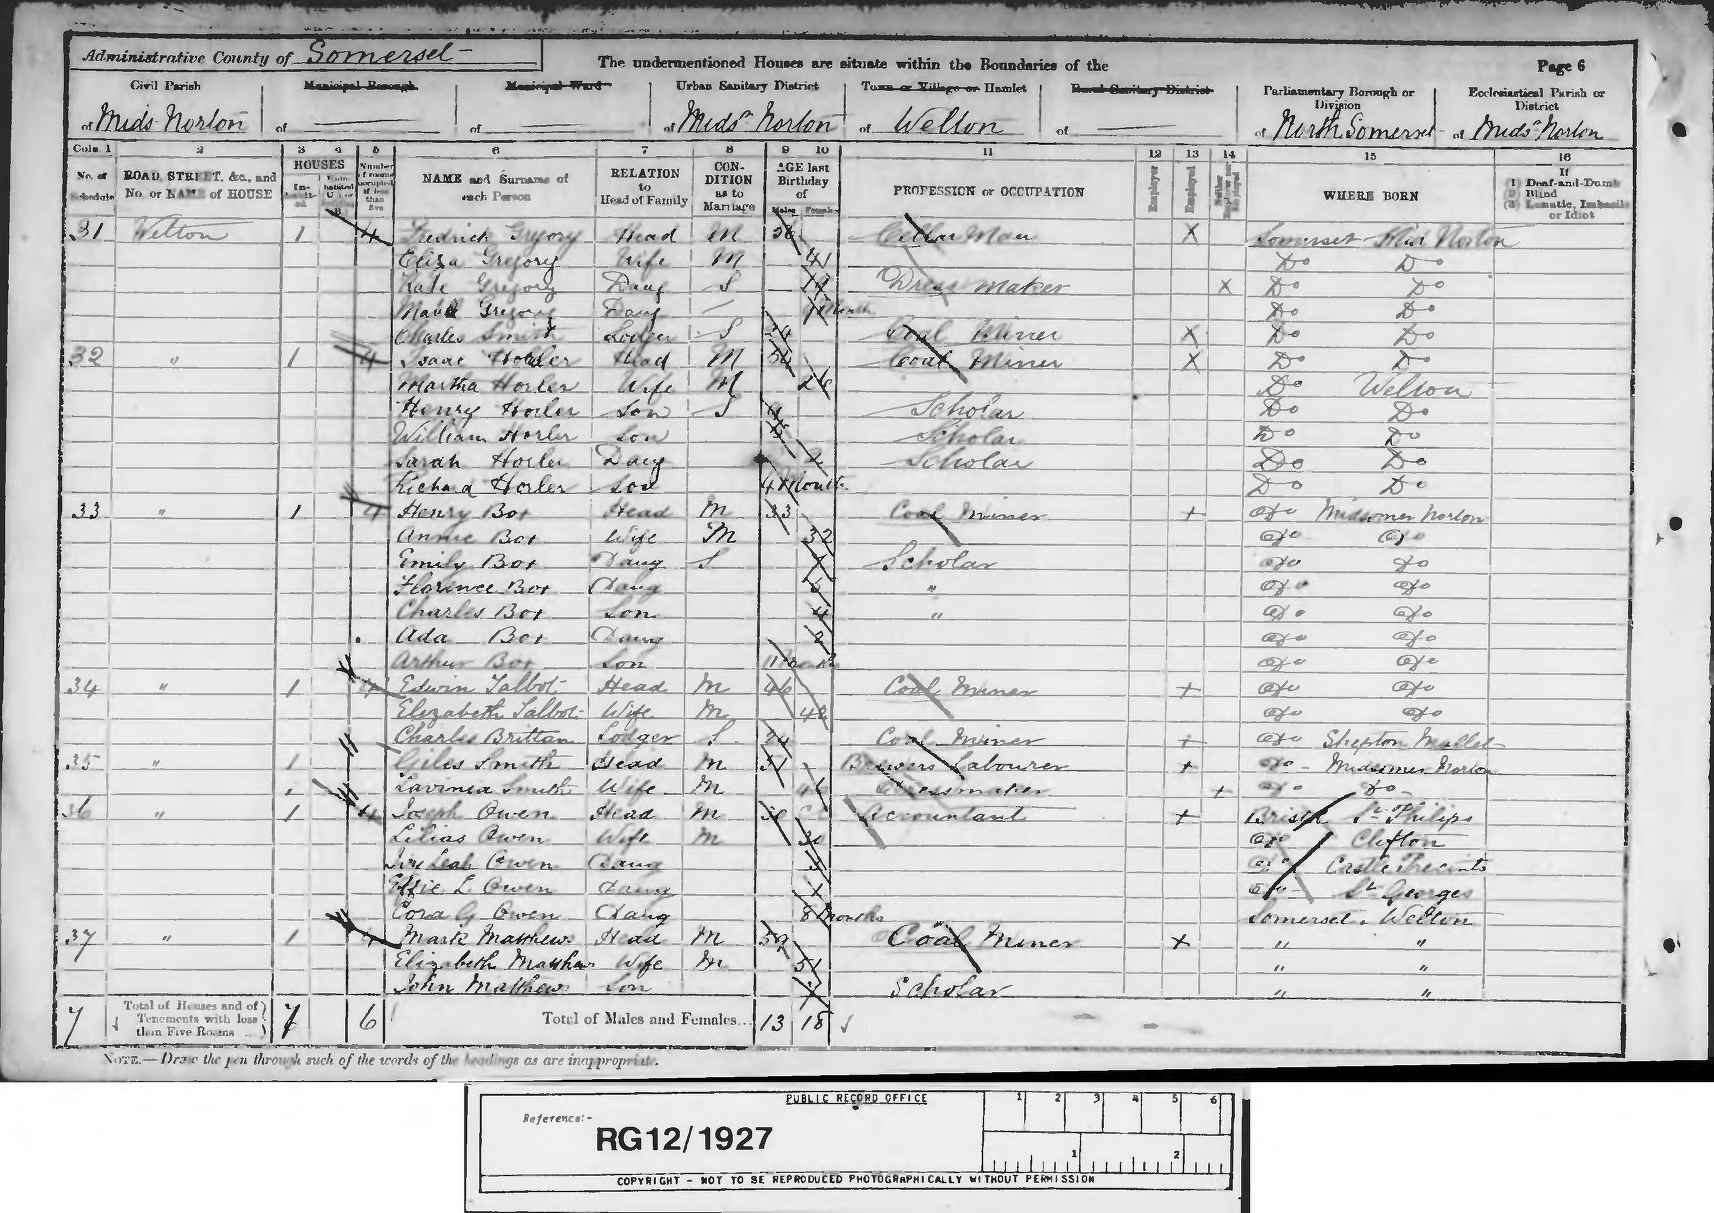 Administrative County of Somerset
The undermentioned Houses are situate within the Boundaries of the
Page 6
Civil Parish
Municipal Borough
Municipal Ward
Urban Sanitary District
Town or Village or Hamlet
Rural Sanitary District
Parliamentary Borough or Division
Ecclesiastical Parish or District
of Mids Norton of of of Mids. Norton of Welton of of North Somerset of Mids. Norton
Cols. 1 2 3 4 5 6 7 8 9 10 11 12 13 14 15 16
No. of Schedule
ROAD, STREET, &c., and No. or NAME of HOUSE
HOUSES
Inhabited
Number of rooms occupied if less than five
NAME and Surname of each Person
RELATION to Head of Family
CONDITION as to Marriage
AGE last Birthday of
Males Females
PROFESSION or OCCUPATION
Employer
Employed
Neither Employer nor Employed
WHERE BORN
If
(1) Deaf-and-Dumb
(2) Blind
(3) Lunatic, Imbecile or Idiot
31 Welton 1 4 Fredrick Gregory Head M Cellar Man X Somerset Mid Norton
Eliza Gregory Wife M 41 Do Do
Kate Gregory Daug S 19 Dress Maker X Do Do
Mabel Gregory Daug Month Do Do
Charles Smith Lodger S 24 Coal Miner X Do Do
32 " 1 4 Isaac Horler Head M Coal Miner X Do Do
Martha Horler Wife M 26 Do Welton
Henry Horler Son S Scholar Do Do
William Horler Son Scholar Do Do
Sarah Horler Daug 2 Scholar Do Do
Richard Horler Son 4 Months Do Do
33 " 1 4 Henry Box Head M 33 Coal Miner + Do Midsomer Norton
Annie Box Wife M 32 Do Do
Emily Box Daug S 7 Scholar Do Do
Florence Box Daug " Do Do
Charles Box Son 4 " Do Do
Ada Box Daug 2 Do Do
Arthur Box Son 11 Months Do Do
34 " 1 4 Edwin Talbot Head M 46 Coal Miner + Do Do
Elizabeth Talbot Wife M 42 Do Do
Charles Brittan Lodger S 24 Coal Miner + Do Shepton Mallet
35 " 1 Giles Smith Head M 51 Brewers Labourer + Do Midsomer Norton
Lavinia Smith Wife M 46 Dressmaker + Do Do
36 " 1 4 Joseph Owen Head M 30 Accountant + Bristol St Philips
Lilias Owen Wife M 30 Do Clifton
Leah Owen Daug 3 Do Castle Precincts
Effie L Owen Daug 1 Do St Georges
Cora G Owen Daug 8 Months Somerset. Welton
37 " 1 4 Mark Matthews Head M 59 Coal Miner + " "
Elizabeth Matthews Wife M 51 " "
John Matthews Son Scholar " "
7 Total of Houses and of Tenements with less than Five Rooms 7 6 Total of Males and Females... 13 18
NOTE.—Draw the pen through such of the words of the headings as are inappropriate.
PUBLIC RECORD OFFICE
Reference:-
RG12/1927
1 2 3 4 5 6
1 2
COPYRIGHT - NOT TO BE REPRODUCED PHOTOGRAPHICALLY WITHOUT PERMISSION